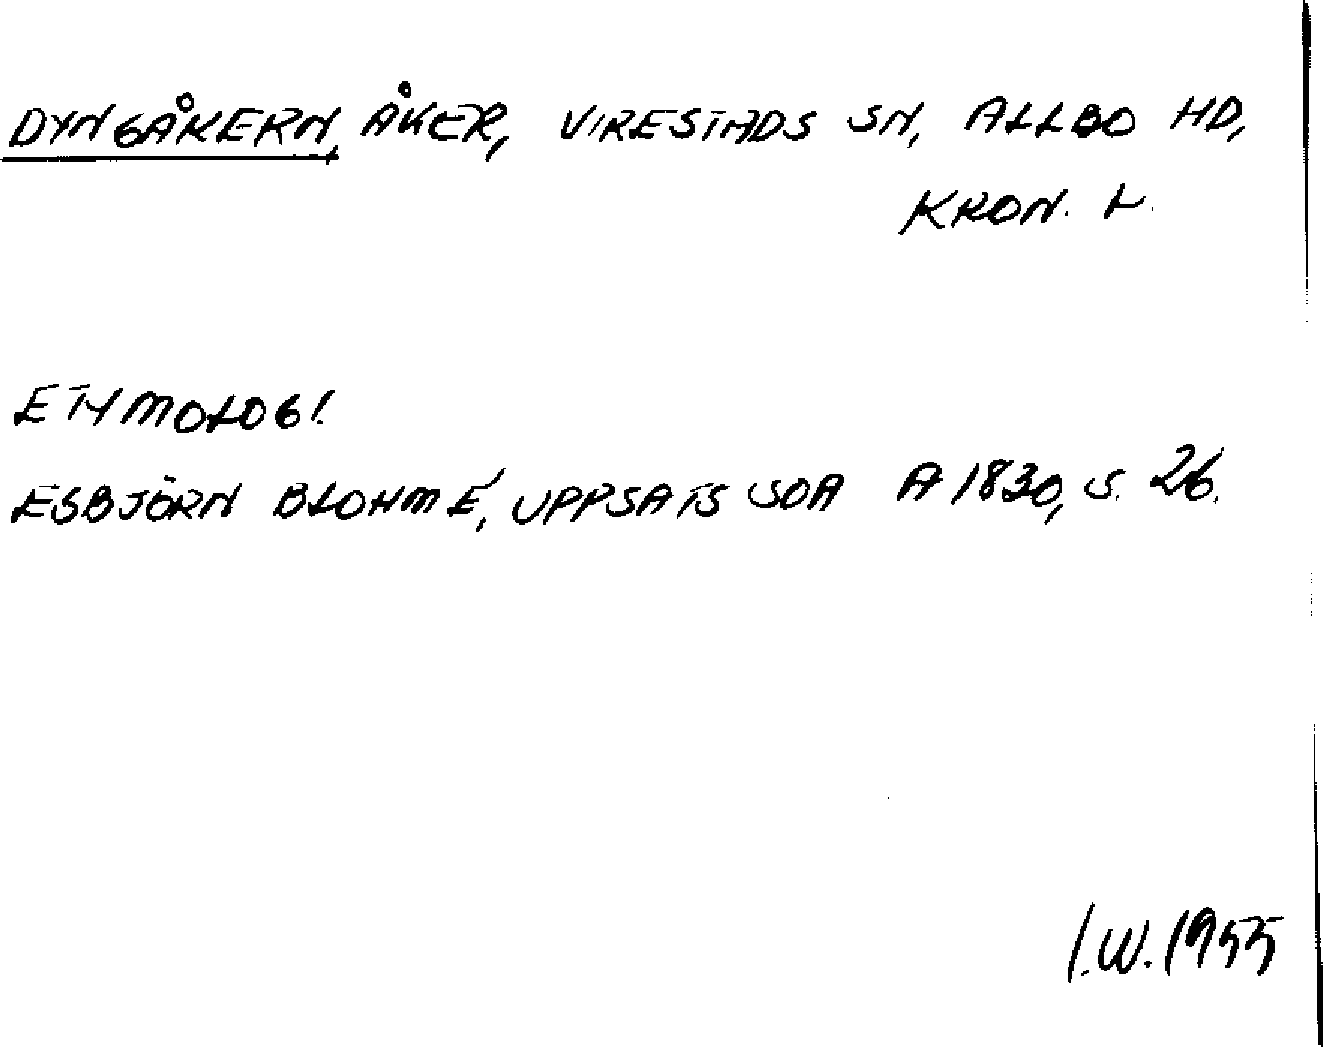 DYNGÅKERN, ÅKER, VIRESTADS SN, ALLBO HD,
KRON. L.
ETYMOLOGI.
ESBJÖRN BLOHMÉ, UPPSATS SOA A 1830, S. 26.
I.W. 1955